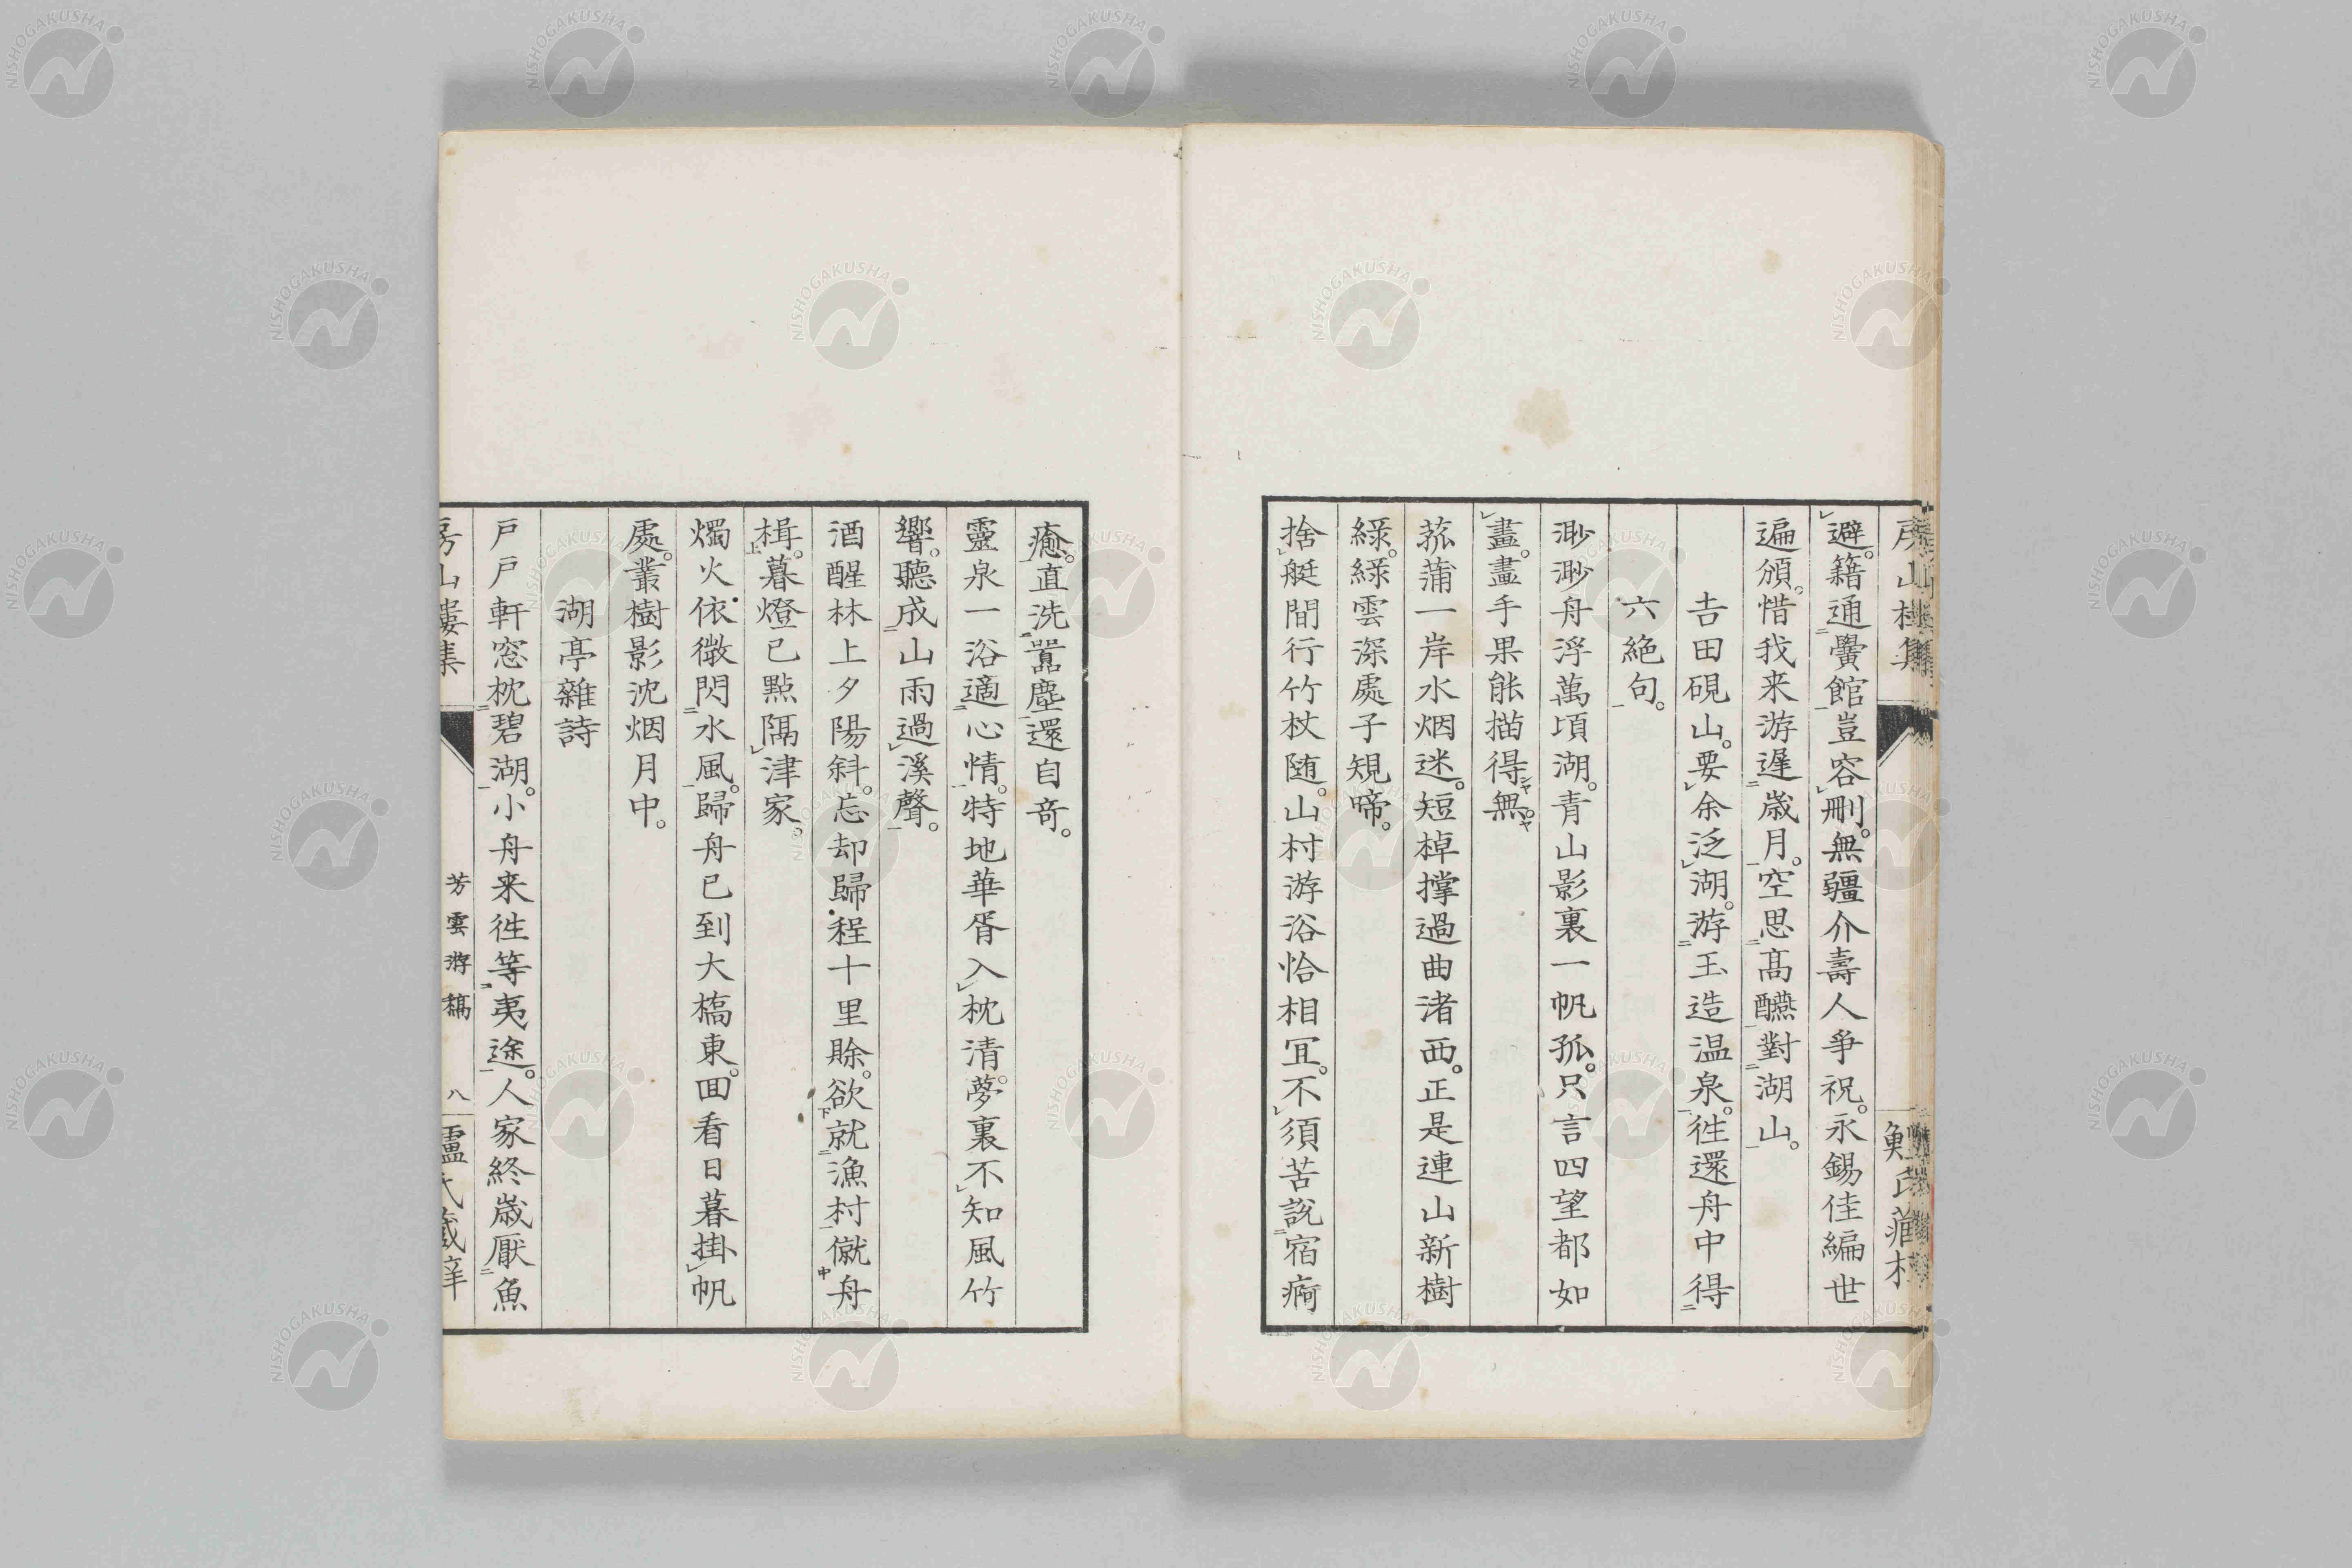 避。籍通黌館豈容刪。無疆介壽人爭祝。永錫佳編世
遍頒。惜我来游遅歳月。空思高醼對湖山。
吉田硯山。要余泛湖。游玉造温泉。徃還舟中得
六絶句。
渺渺舟浮萬頃湖。青山影裏一帆孤。只言四望都如
畫。畫手果能描得無。
菰蒲一岸水烟迷。短棹撑過曲渚西。正是連山新樹
緑。緑雲深處子規啼。
捨艇間行竹杖随。山村游浴恰相宜。不須苦說宿痾
癒。直洗囂塵還自奇。
靈泉一浴適心情。特地華胥入枕清。夢裏不知風竹
響。聽成山雨過溪聲。
酒醒林上夕陽斜。忘却歸程十里賖。欲就漁村僦舟
楫。暮燈已點隔津家。
燭火依微閃水風。歸舟已到大橋東。囬看日暮掛帆
處。叢樹影沈烟月中。
湖亭雜詩
戸戸軒窓枕碧湖。小舟来徃等夷途。人家終歳厭魚
房山樓集
芳雲游稿
八
NISHOGAKUSHA